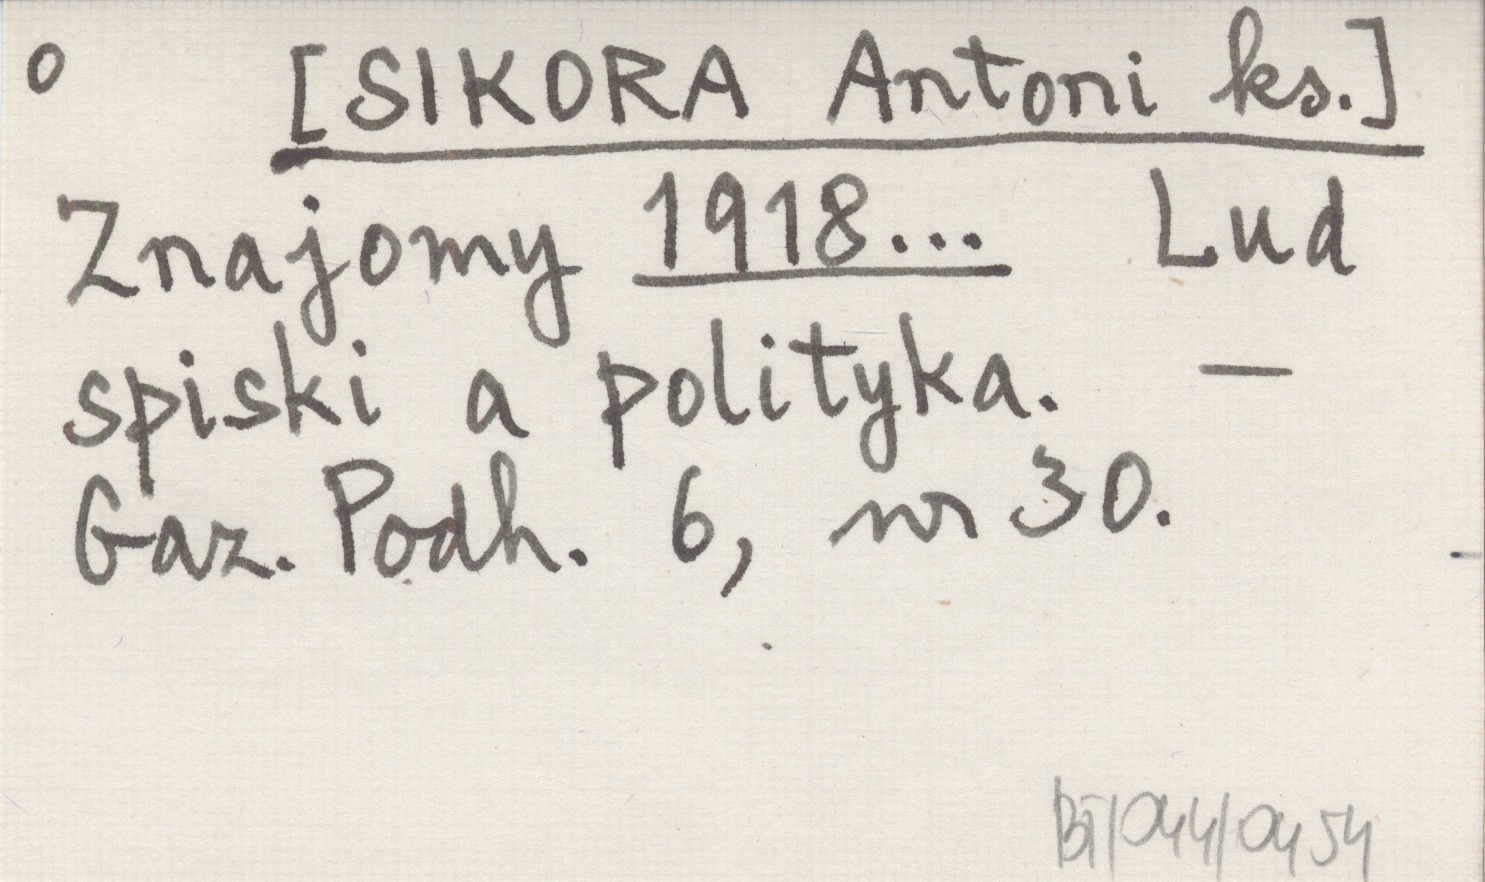 o [SIKORA Antoni ks.]
Znajomy 1918... Lud
spiski a polityka. —
Gaz. Podh. 6, nr 30.
BT/044/0454